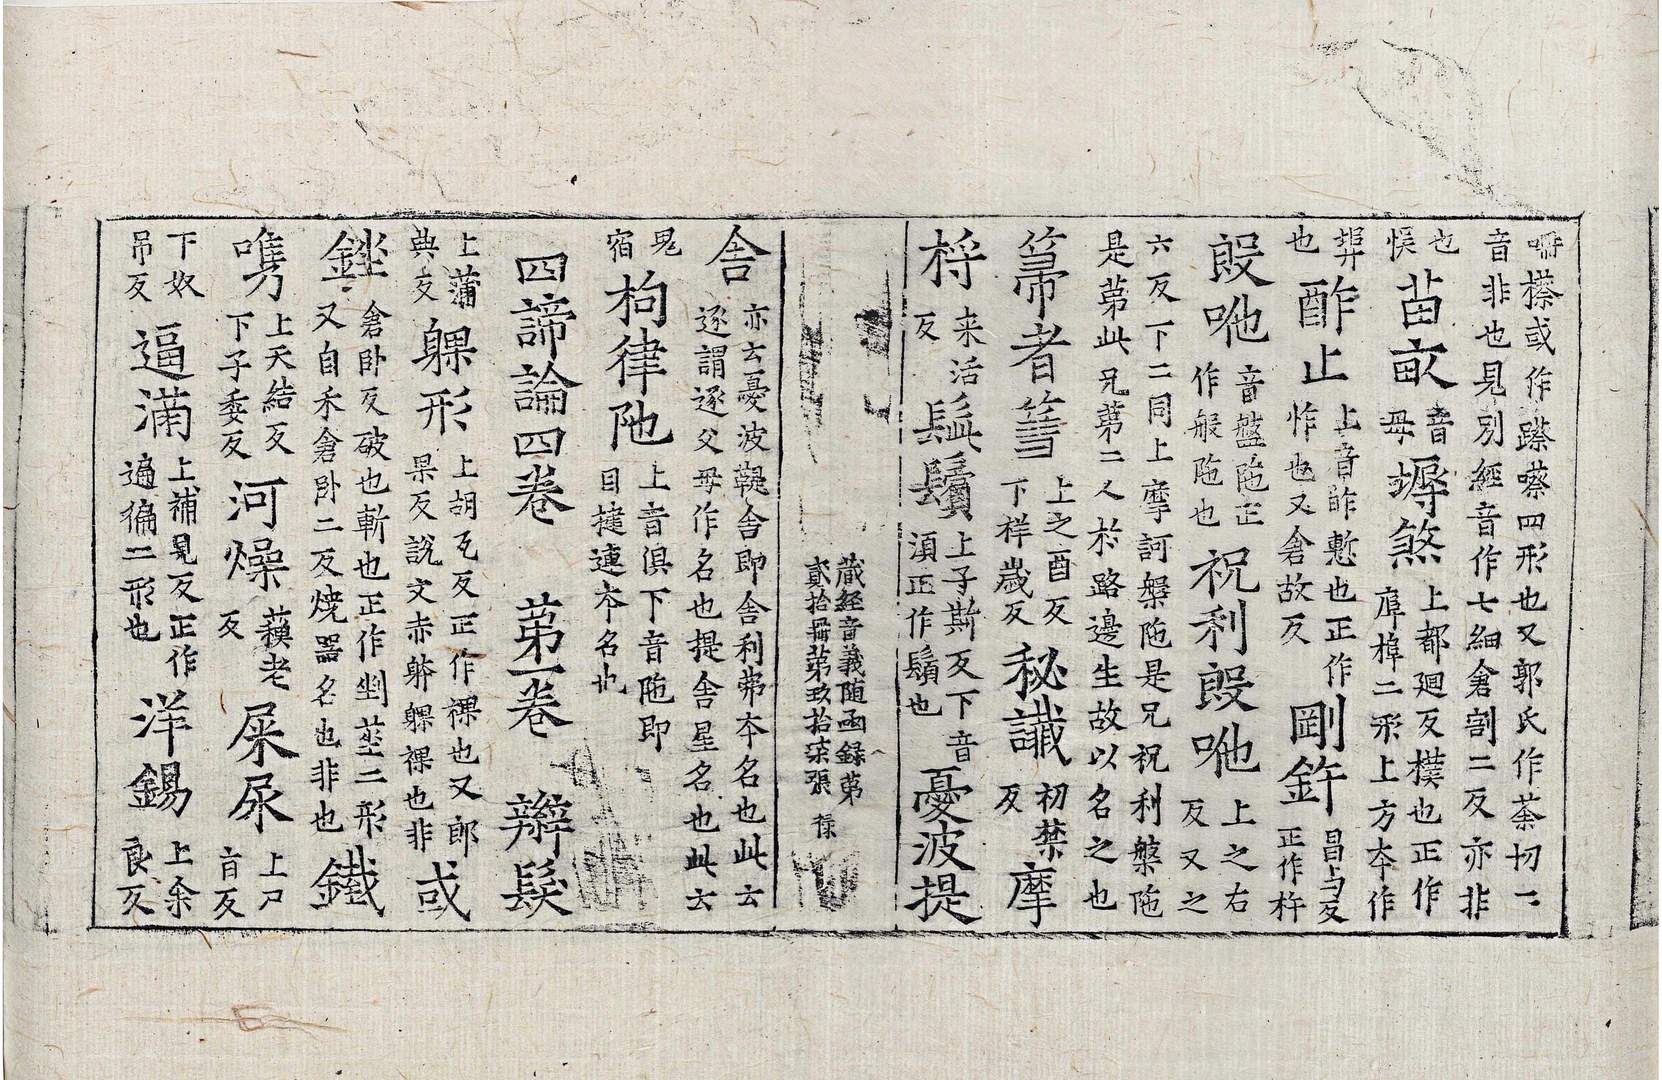 㗲檫或作蹨嚓四形也又郭氏作茶切二
音非也見別經音作七細倉割二反亦非
也
悮苗畝音
母墿煞上都廻反㩧也正作
𡌨埠二形上方夲作
㙃
也酢止上音昨慙也正作
怍也又倉故反剛䤗昌与反
正作杵
㲃吔音盤陁正
作般陁也祝利㲃吔上之右
反又之
六反下二同上摩訶槃陁是兄祝利槃陁
是苐此兄苐二人於路邊生故以名之也
箒者篲上之酉反
下祥歲反秘讖初禁
反摩
捋来活
反髭鬚上子斯反下音
湏正作鬚也憂波提
蔵經音義随函録苐
貳拾冊苐玖拾柒張 祿
舎亦云憂波鞮舎即舎利弗夲名也此云
逐謂逐父母作名也提舎星名也此云
鬼
宿拘律陁上音俱下音陁即
目揵連夲名也
四諦論四卷
苐一卷
辮髮
上蒲
典反躶形上胡瓦反正作祼也又郎
果反說文赤躰躶祼也非或
銼倉卧反破也斬也正作剉莝二形
又自禾倉卧二反燒器名也非也鐵
㗾上天結反
下子委反河燥蘓老
反屎尿上尸
旨反
下奴
吊反逼滿上補見反正作
遍徧二形也洋錫上余
良反